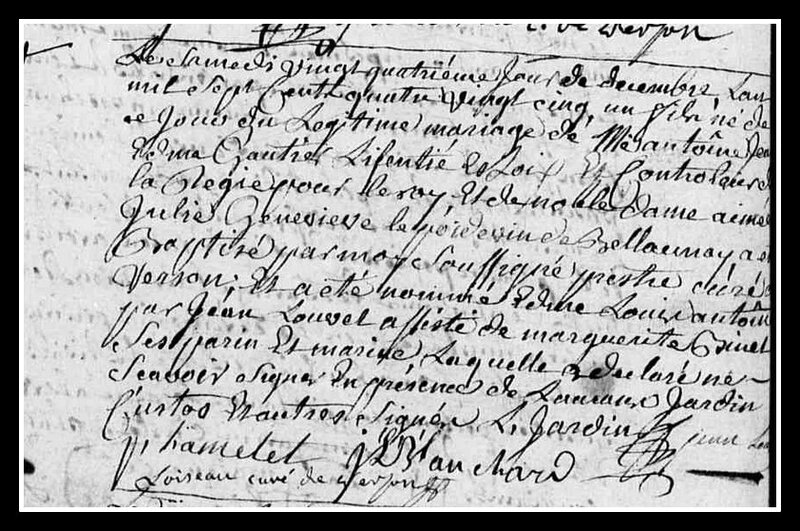 de verson
Le samedi vingt quatriéme jour de decembre Lan
mil sept Cent quatre vingt cinq un fils né de
ce jour du Legitime mariage de Me antoine Jean
Edme Gautier Lisentié es Loix Et Controleur de
la Regie pour le roy Et de noble dame aimée
Julie Genevieve le poidevin de Bellaunay a eté
Baptisé par moy soussigné prestre curé de
Verson, Et a eté nommé Edme Louis antoine
par Jean Louvet assisté de marguerite Grinet
ses parin Et marine Laquelle a declaré ne
Scavoir signer En présence de Jardin
Custos Et autres signés L. Jardin jean
P. hamelet J. Blanchard
Loiseau curé de verson